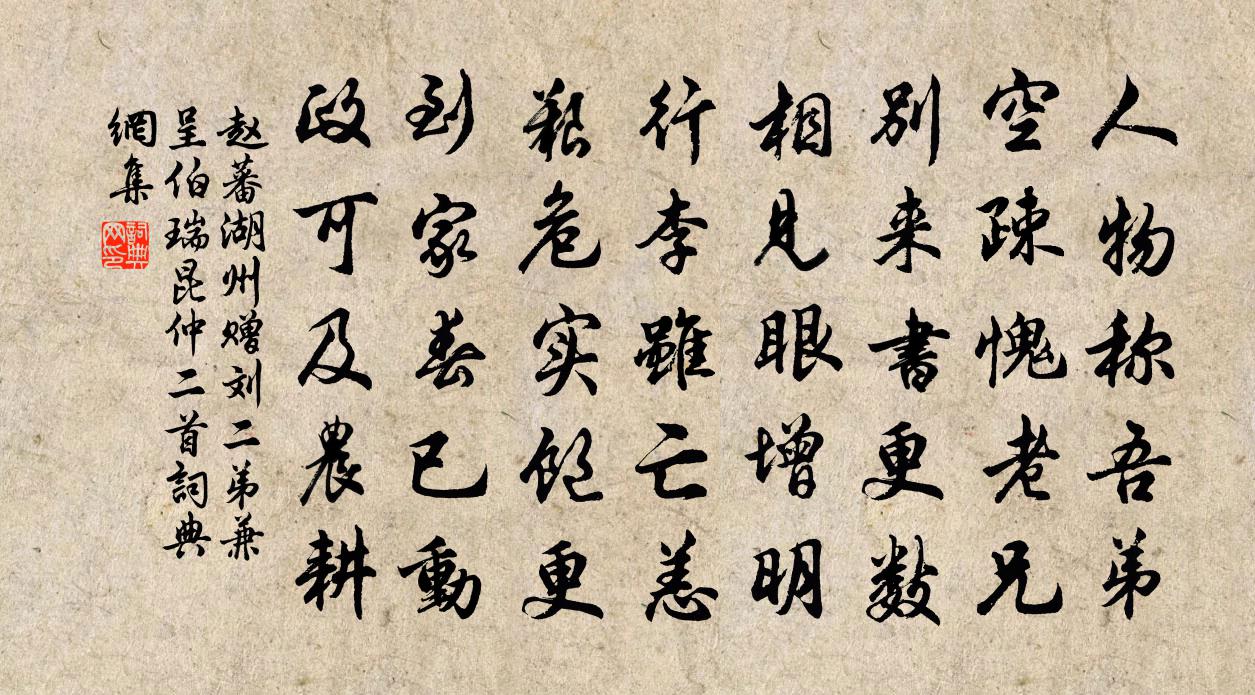 人物称吾弟
空疎愧老兄
别来書更数
相見眼增明
行李雖亡恙
艱危实飽更
到家春已動
政可及農耕
赵蕃湖州赠刘二弟兼
呈伯瑞昆仲二首詞典
網集
詞典网印